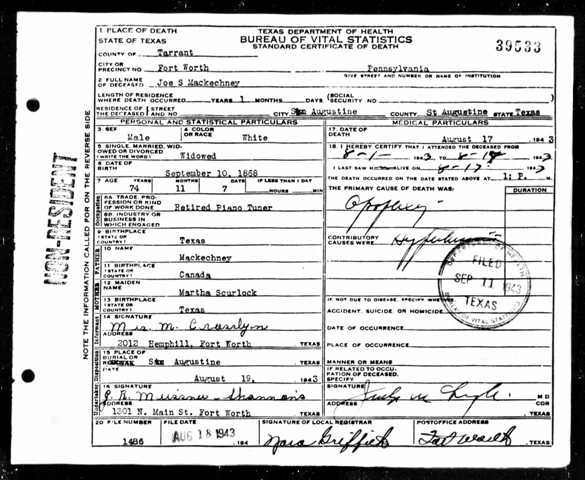 1 PLACE OF DEATH
STATE OF TEXAS
TEXAS DEPARTMENT OF HEALTH
BUREAU OF VITAL STATISTICS
STANDARD CERTIFICATE OF DEATH
39533
COUNTY OF Tarrant
CITY OR PRECINCT NO. Fort Worth Pennsylvania
GIVE STREET AND NUMBER OR NAME OF INSTITUTION
2 FULL NAME OF DECEASED Joe S Mackechney
LENGTH OF RESIDENCE WHERE DEATH OCCURRED YEARS 1 MONTHS DAYS (SOCIAL SECURITY NO.
RESIDENCE OF THE DECEASED STREET AND NO. CITY San Augustine COUNTY St Augustine STATE Texas
PERSONAL AND STATISTICAL PARTICULARS
3 SEX Male
4 COLOR OR RACE White
5 SINGLE, MARRIED, WIDOWED OR DIVORCED (WRITE THE WORD) Widowed
6 DATE OF BIRTH September 10, 1868
7 AGE YEARS 74 MONTHS 11 DAYS 7 IF LESS THAN 1 DAY HOURS MIN
8A TRADE, PROFESSION OR KIND OF WORK DONE Retired Piano Tuner
8B. INDUSTRY OR BUSINESS IN WHICH ENGAGED
9 BIRTHPLACE (STATE OR COUNTRY) Texas
10 NAME Mackechney
11 BIRTHPLACE (STATE OR COUNTRY) Canada
12 MAIDEN NAME Martha Scurlock
13 BIRTHPLACE (STATE OR COUNTRY) Texas
14 SIGNATURE Mrs. M.
ADDRESS 2012 Hemphill, Fort Worth TEXAS
15 PLACE OF BURIAL OR San Augustine TEXAS
DATE August 19, 1943
16 SIGNATURE Meissner - Shannons
ADDRESS 1301 N. Main St. Fort Worth TEXAS
MEDICAL PARTICULARS
17. DATE OF DEATH August 17 1943
18. I HEREBY CERTIFY THAT I ATTENDED THE DECEASED FROM
8-1- 1943 TO 8-17 1943
I LAST SAW ALIVE ON 8-17 1943
THE DEATH OCCURRED ON THE DATE STATED ABOVE AT 1: P. M
THE PRIMARY CAUSE OF DEATH WAS: DURATION
CONTRIBUTORY CAUSES WERE:
FILED
SEP 11 1943
TEXAS
IF NOT DUE TO DISEASE, SPECIFY WHETHER
ACCIDENT, SUICIDE OR HOMICIDE
DATE OF OCCURRENCE
PLACE OF OCCURRENCE
MANNER OR MEANS
IF RELATED TO OCCUPATION OF DECEASED, SPECIFY
SIGNATURE M D
ADDRESS COR
TEXAS
20 FILE NUMBER 1486
FILE DATE AUG 18 1943 194
SIGNATURE OF LOCAL REGISTRAR Nora Griffith
POSTOFFICE ADDRESS Fort Worth TEXAS
NON-RESIDENT
NOTE THE INFORMATION CALLED FOR ON THE REVERSE SIDE